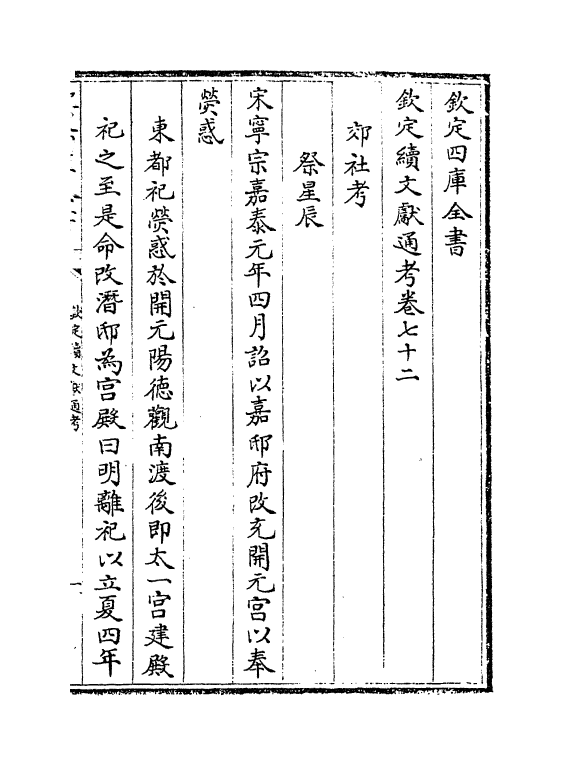 欽定四庫全書
欽定續文獻通考卷七十二
郊社考
祭星辰
宋寧宗嘉泰元年四月詔以嘉邸府改充開元宮以奉
熒惑
東都祀熒惑於開元陽德觀南渡後即太一宮建殿
祀之至是命改潛邸為宮殿曰明離祀以立夏四年
欽定續文獻通考
一